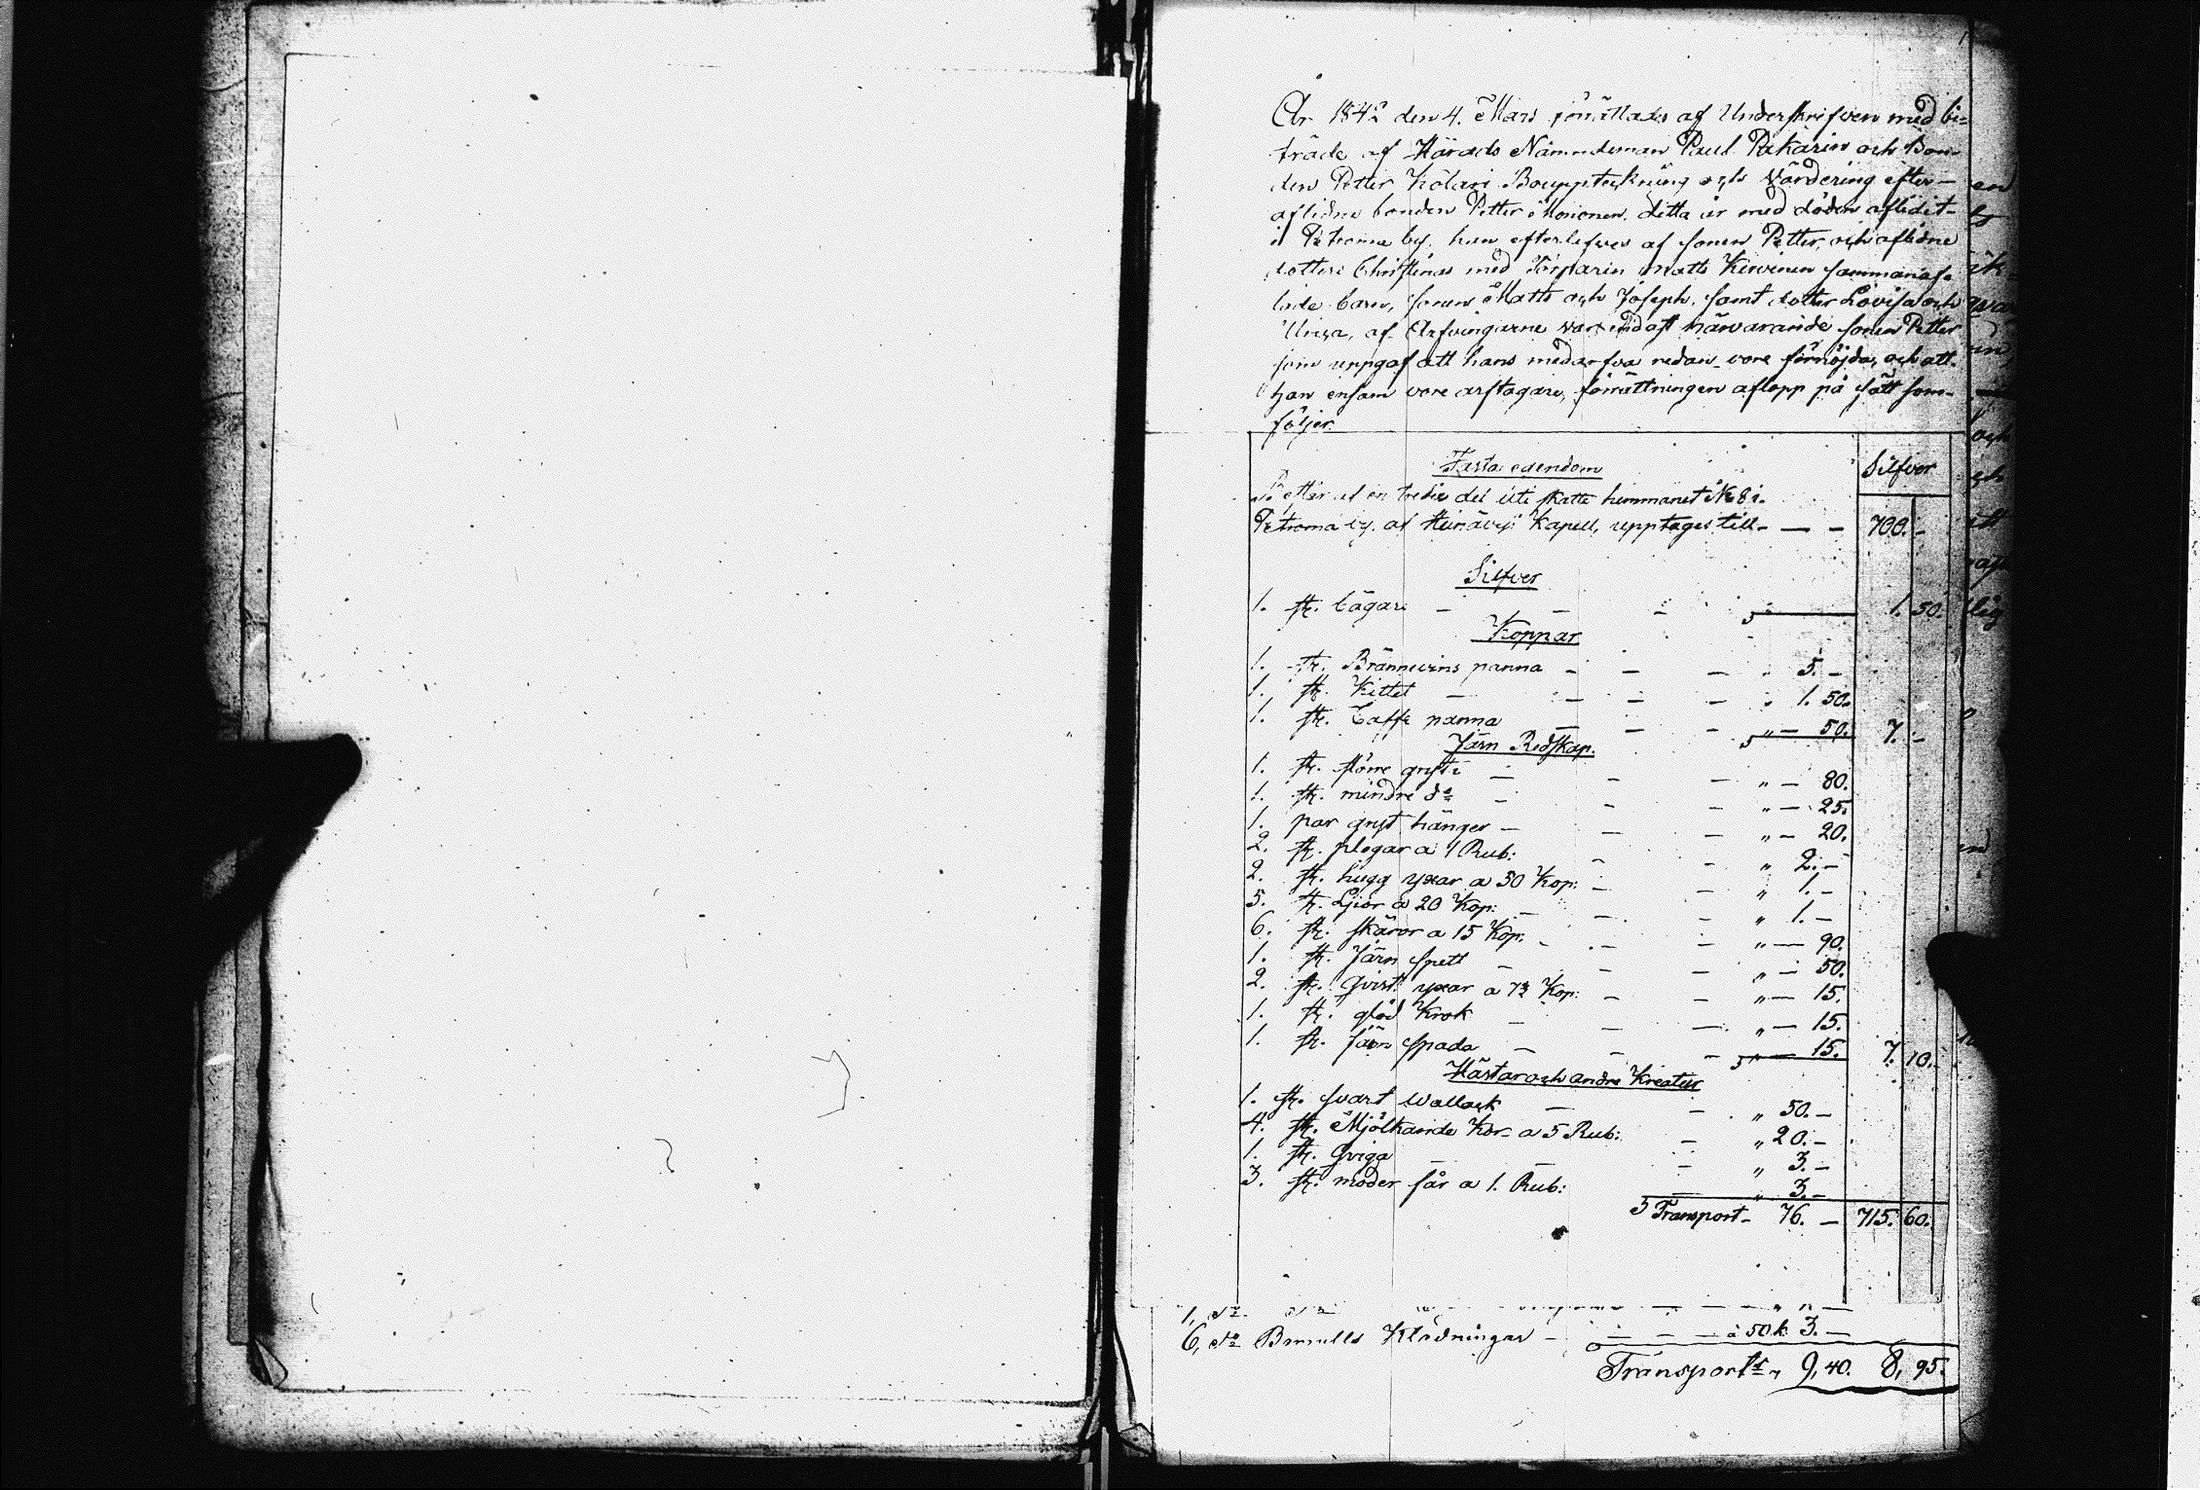 År 1842 den 4. Mars förrättades af Underskrifven med bi=
träde af Härads Nämndeman Paul Pakarin och Bon-
den Petter Kolari Bouppteckning och Värdering efter-
aflidne bonden Petter Mononen, detta år med döden aflidit-
i Petroma by, han efterlefves af sonen Petter, och aflidne
dotter Christinas med Torparin Matts Kirvinen sammanaf-
lade barn, sonen Matts och Joseph, samt dotter Lovisa och
Ulrica, af Arfvingarne var endast härvarande sonen Petter
som uppgaf att hans medarfva redan vore förnöjda, och att
han ensam vore arftagare, förrättningen aflopp på sätt som-
följer.
Fasta egendom Silfver
en tredie del uti skatte hemmanet No 8 i
Petroma by, af Kapell, upptages till - — — 700. -
Silfver
1. st. bägare — — — " 1. 50.
Koppar
1. st. Brännvins panna — — — " 5. —
1. st. Kittel — — — — " 1. 50.
1. st. Caffe panna — — — " — 50. 7. -
Järn Redskap.
1. st. större gryta — — — " — 80.
1. st. mindre do — — — " — 25.
1. par gryt hänger — — — " — 20.
2. st. plogar a 1 Rub: — — " 2. —
2. st. hugg yxar a 50 Kop: — — " 1. —
5. st. Lior a 20 Kop: — — — " 1. —
6. st. skäror a 15 Kop. — — — " — 90.
1. st. Järn spett — — — " — 50.
2. st. Qvist yxar a 7½ Kop: — — " — 15.
1. st. glöd Krok — — — " — 15.
1. st. Järn spada — — — " — 15. 7. 10.
Hästar och andre Kreatur
1. st. svart Wallack — — " 50. —
4. st. Mjölkande Kor a 5 Rub: — " 20. —
1. st. Qviga — " 3. —
3. st. moder får a 1. Rub: — " 3. —
Transport — 76. — 715. 60.
6, do Bomulls Klädningar — — — — à 50 k. 3. —
Transport 9, 40. 8, 95.